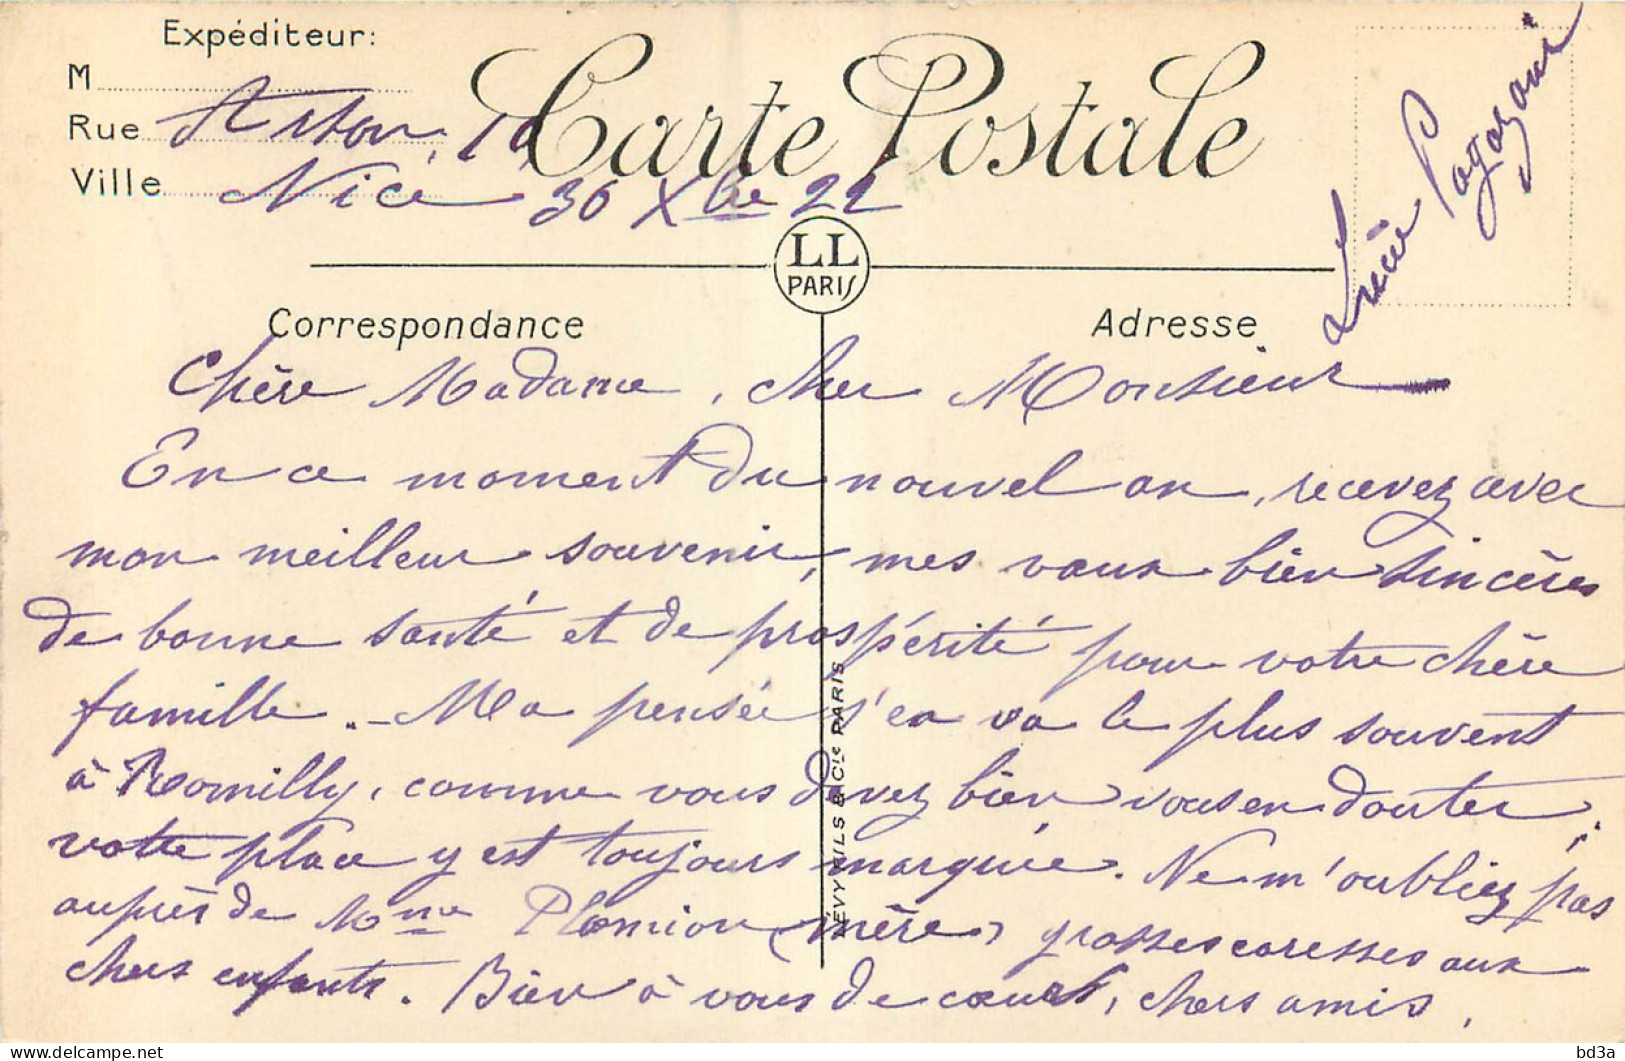 Expéditeur:
M
Rue
Ville
Carte Postale
Nice 30 Xbre 22
LL
PARIS
Correspondance
Adresse
Chère Madame, cher Monsieur
En ce moment du nouvel an, recevez avec
mon meilleur souvenir, mes vœux bien sincères
de bonne santé et de prospérité pour votre chère
famille. - Ma pensée s'en va le plus souvent
à Romilly, comme vous devez bien vous en douter,
votre place y est toujours marquée. Ne m'oubliez pas
auprès de Mme (mère) grosses caresses aux
chers enfants. Bien à vous de cœur, chers amis.
LEVY FILS & Cie PARIS
bd3a